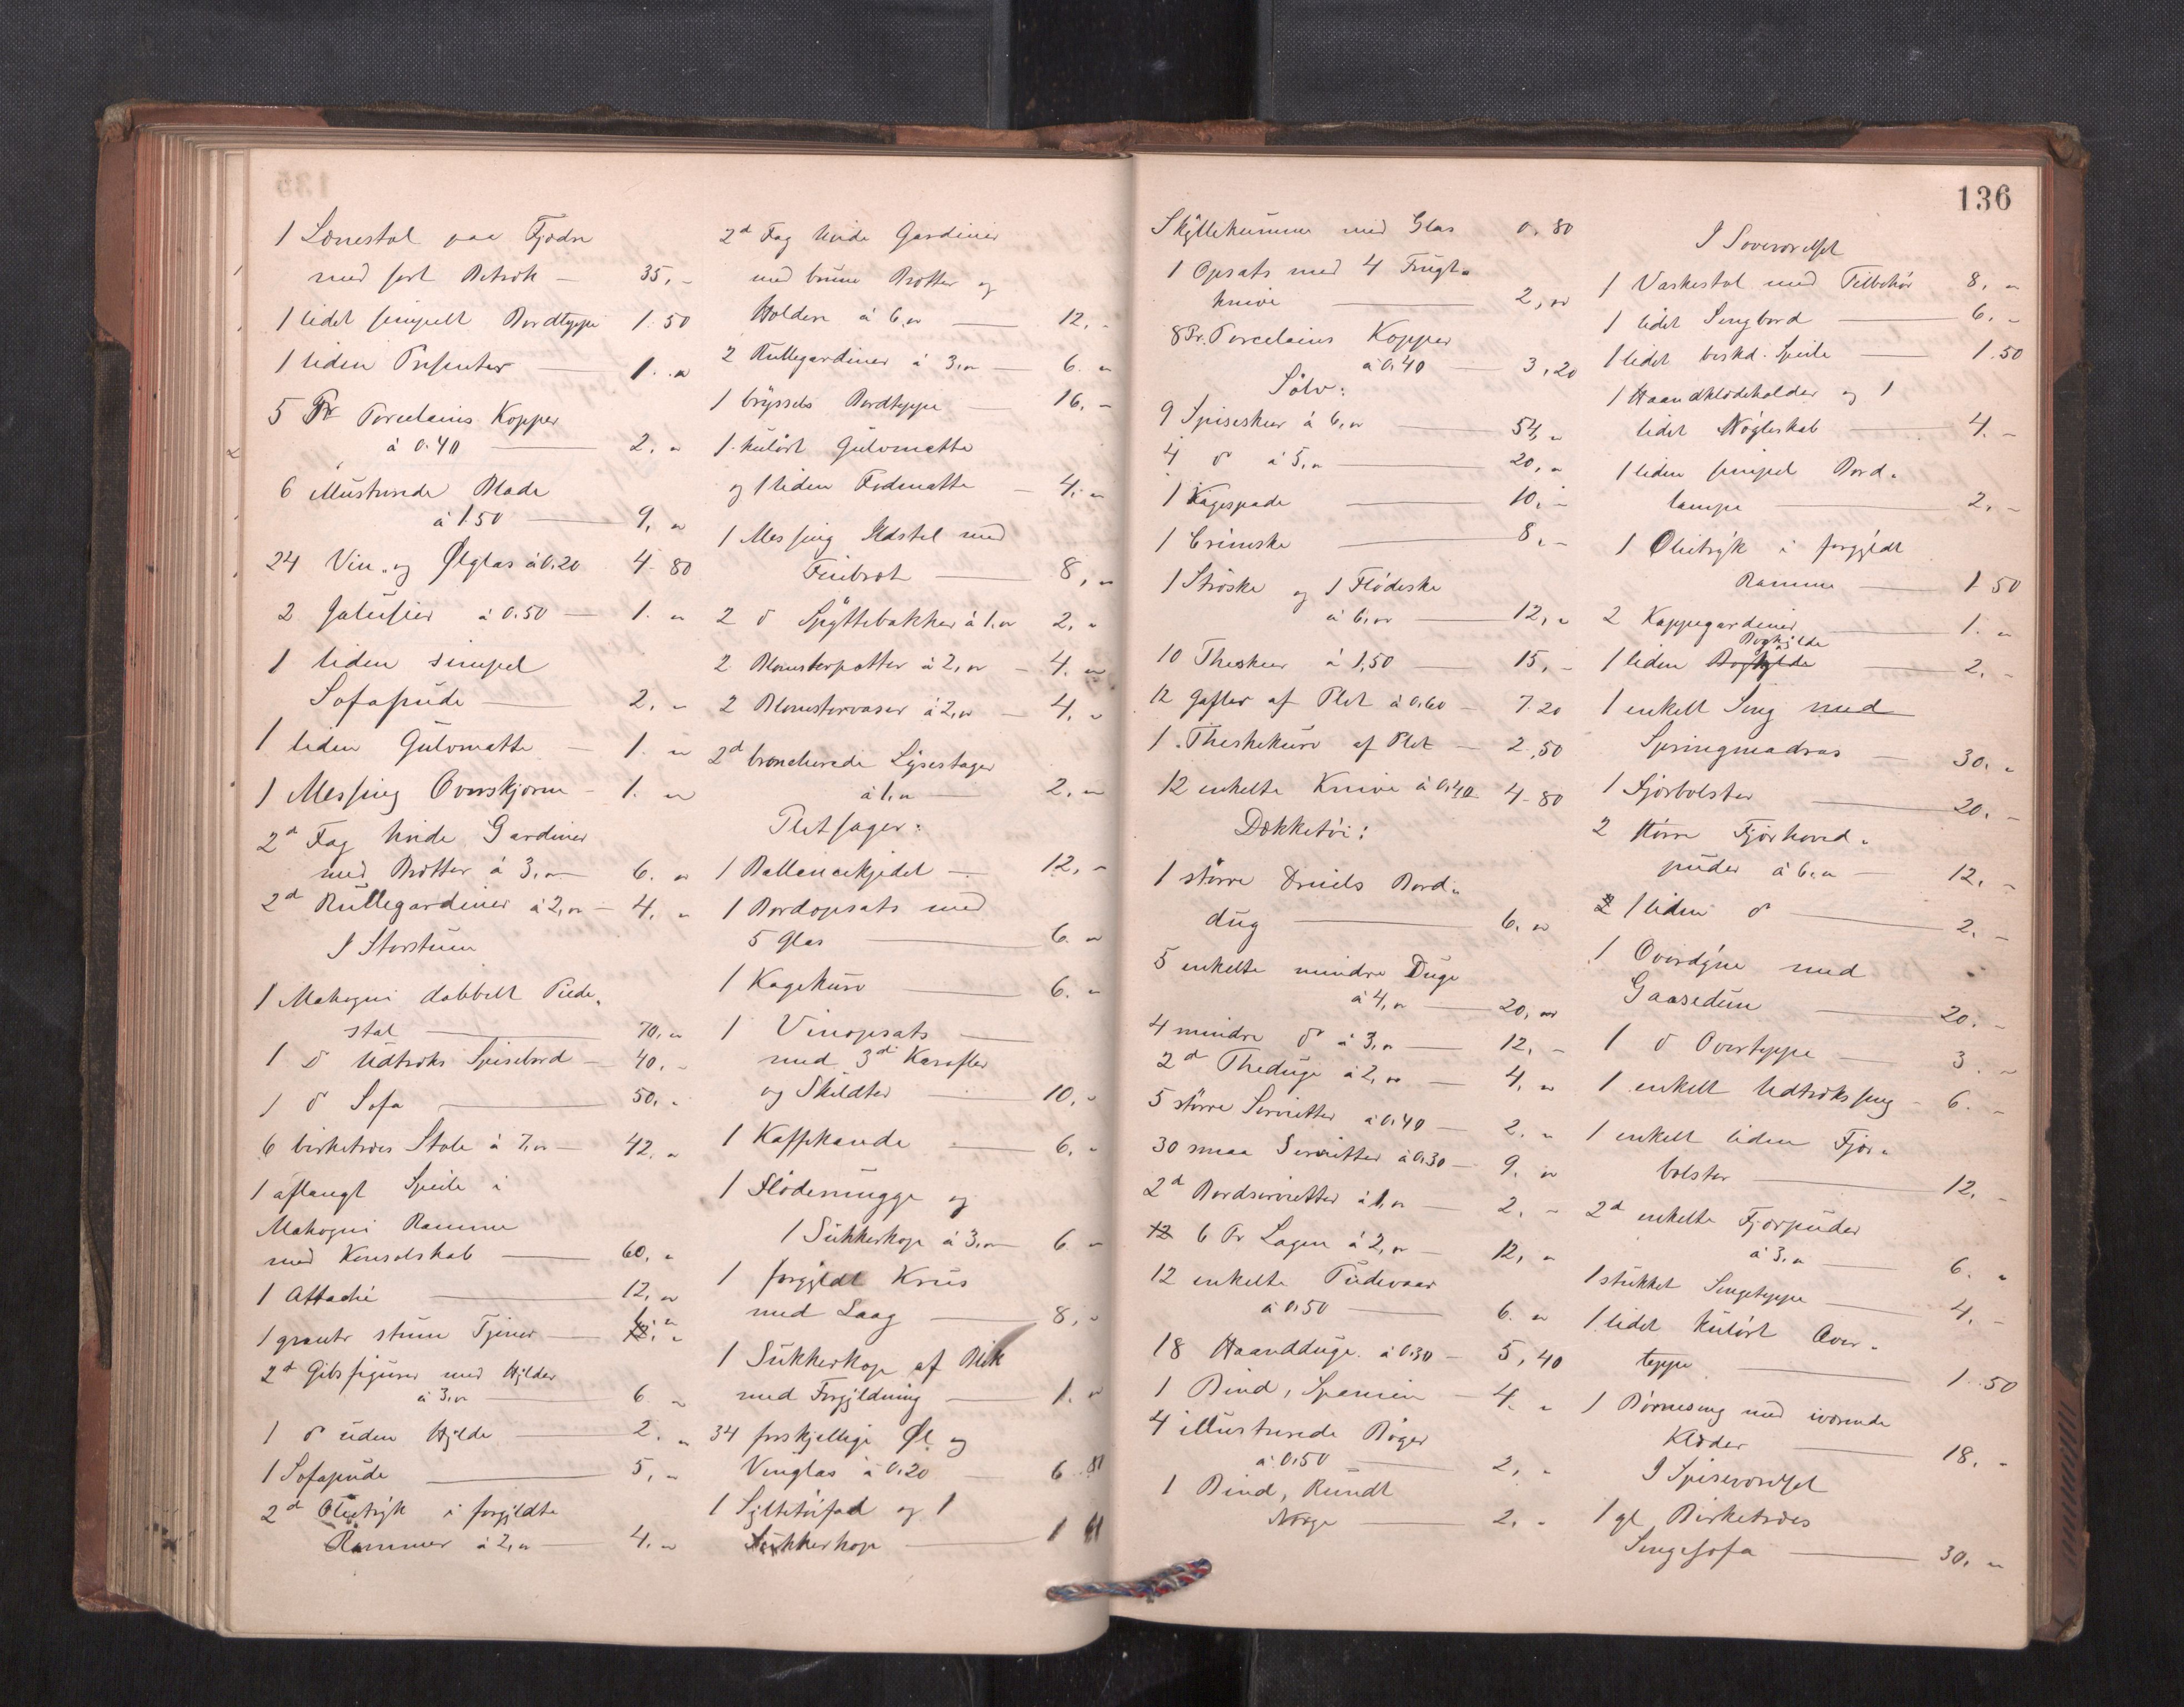 1 Lænestol paa Fjædre
med sort Betræk — 35, "
1 lidet simpelt Bordteppe 1. 50
1 liden Presenter — 1. "
5 Pr Porcelains Kopper
à 0.40 — 2. "
6 illustrerede Blade
à 1.50 — 9, "
24 Vin- og Ølglas à 0.20 4. 80
2 Jalusier à 0.50 — 1. "
1 liden simpel
Sofapude — 2. "
1 liden Gulvmatte — 1. "
1 Messing Ovnskjærm — 1. "
2d Fag hvide Gardiner
med Brætter à 3," 6. "
2d Rullegardiner à 2," — 4. "
I Storstuen
1 Mahogni dobbelt Piede-
stal — 70, "
1 do Udtræks Spisebord — 40, "
1 do Sofa — 50, "
6 birketræes Stole à 7," — 42. "
1 aflangt Speile i
Mahogni Ramme
med Konsolskab — 60, "
1 Attaché — 12, "
1 stum Tjener — 12, " 6 "
2d Gibsfigurer med Hylder
à 3," — 6. "
1 do uden Hylde — 2. "
1 Sofapude — 5, "
2d Olietryk i forgyldte
Rammer à 2," — 4. "
2d Fag hvide Gardiner
med brune Brætter og
Holdere à 6," — 12, "
2 Rullegardiner à 3," — 6. "
1 bryssels Bordteppe — 16, "
1 kulørt Gulvmatte
og 1 liden Fodmatte — 4, "
1 Messing Ildstel med
Finbræt — 8, "
2 do Spyttebakker à 1." 2, "
2 Blomsterpotter à 2," — 4. "
2 Blomstervaser à 2," — 4, "
2d broncherede Lysestager
à 1," — 2, "
Pletsager:
1 Ballancekjedel — 12, "
1 Bordopsats med
5 Glas — 6. "
1 Kagekurv — 6. "
1 Vinopsats
med 3di Karafler
og Skildter — 10, "
1 Kaffekande — 6, "
1 Flødemugge og
1 Sukkerkop à 3," 6 "
1 forgyldt Krus
med Laag — 8, "
1 Sukkerkop af Blik
med Forgyldning — 1. "
34 forskjellige Øl og
Vinglas à 0.20 6. 81
1 Syltetøifad og 1
Sukkerkop — 1 61
136
Skyllekumme med Glas 0. 80
1 Opsats med 4 Frugt-
knive — 2, "
8 Pr. Porcelains Kopper
à 0.40 — 3, 20
Sølv:
9 Spiseskeer à 6," — 54, "
4 do à 5," 20, "
1 Kagespade — 10, "
1 Crèmeske — 8, "
1 Strøske og 1 Flødeske
à 6," — 12, "
10 Theskeer à 1,50 — 15, "
12 Gafler af Plet à 0.60 — 7. 20
1 Theskekurv af Plet — 2. 50
12 enkelte Knive à 0.40 4. 80
Dækketøi:
1 større Dreiels Bord-
dug — 6. "
5 enkelte mindre Duge
à 4," — 20, "
4 mindre do à 3," — 12, "
2d Theduge à 2," — 4, "
5 større Servietter à 0.40 — 2. "
30 smaa Servietter à 0.30 — 9. "
2d Bordservietter à 1," — 2. "
12 6 Pr Lagen à 2," — 12, "
12 enkelte Pudevaar
à 0.50 — 6. "
18 Haandduge à 0.30 — 5, 40
1 Bind, Spanien — 4. "
4 illustrerede Bøger
à 0.50 — 2, "
1 Bind, Rundt
Norge — 2. "
I Soveværelset
1 Vaskestol med Tilbehør 8, "
1 lidet Sengbord — 6. "
1 lidet beskd. Speile — 1. 50
1 Haandklædeholder og 1
lidet Nøgleskab — 4. "
1 liden simpel Bord-
lampe — 2, "
1 Olietryk i forgyldt
Ramme — 1 50
2 Kappegardiner — 1. "
Boghylde
1 liden Boghylde — 2. "
1 enkelt Seng med
Springmadras — 30. "
1 Fjørbolster — 20. "
2 større Fjørhoved-
puder à 6." — 12, "
2 1 liden do — 2. "
1 Overdyne med
Gaasedun — 20. "
1 do Overteppe — 3. "
1 enkelt Udtræksseng — 6. "
1 enkelt liden Fjør-
bolster — 12. "
2d enkelte Fjørpuder
à 3," — 6. "
1 stukket Sengeteppe — 4. "
1 lidet kulørt Over-
teppe — 1. 50
1 Børneseng med iværende
Klæder — 18. "
I Spiseværelset
1 gl Birketræes
Sengesofa — 30. "